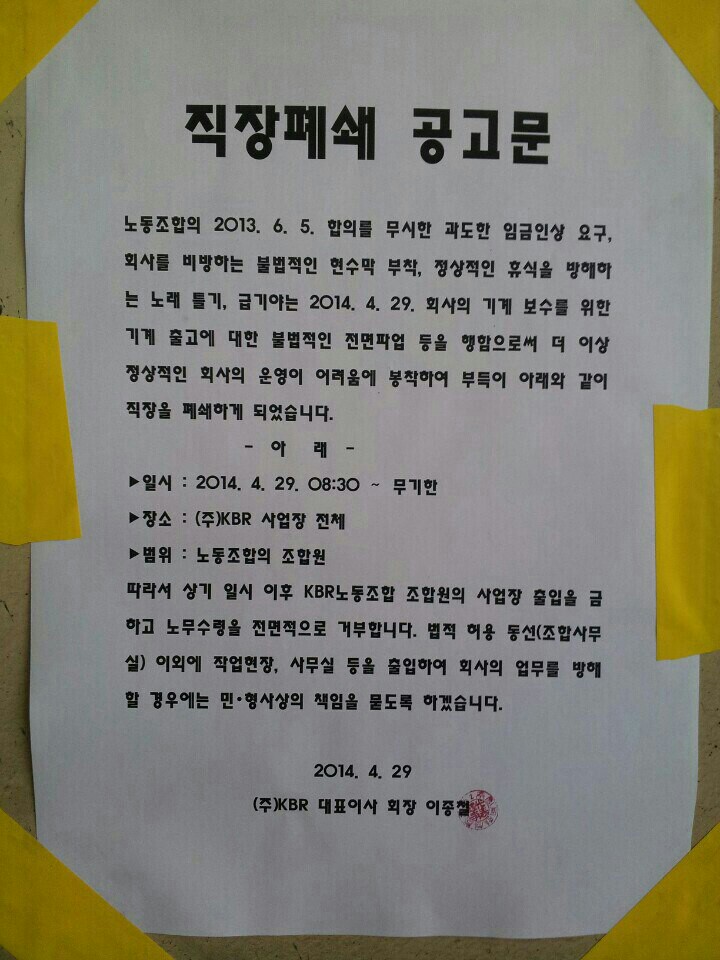 직장폐쇄 공고문
노동조합의 2013. 6. 5. 합의를 무시한 과도한 임금인상 요구,
회사를 비방하는 불법적인 현수막 부착, 정상적인 휴식을 방해하
는 노래 틀기, 급기야는 2014. 4. 29. 회사의 기계 보수를 위한
기계 출고에 대한 불법적인 전면파업 등을 행함으로써 더 이상
정상적인 회사의 운영이 어려움에 봉착하여 부득이 아래와 같이
직장을 폐쇄하게 되었습니다.
- 아 래 -
▶일시 : 2014. 4. 29. 08:30 ~ 무기한
▶장소 : (주)KBR 사업장 전체
▶범위 : 노동조합의 조합원
따라서 상기 일시 이후 KBR노동조합 조합원의 사업장 출입을 금
하고 노무수령을 전면적으로 거부합니다. 법적 허용 동선(조합사무
실) 이외에 작업현장, 사무실 등을 출입하여 회사의 업무를 방해
할 경우에는 민·형사상의 책임을 묻도록 하겠습니다.
2014. 4. 29
(주)KBR 대표이사 회장 이종철